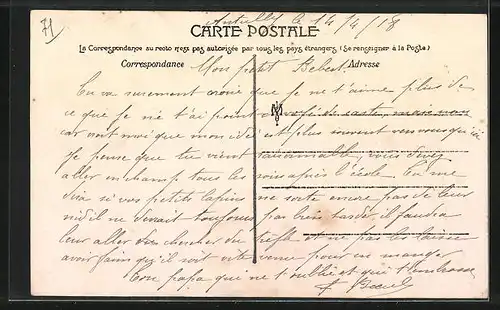 71
Antilly le 14/4/18
CARTE POSTALE
La Correspondance au recto n'est pas autorisée par tous les pays étrangers (Se renseigner à la Poste)
Correspondance Adresse
Mon petit Bebert.
Tu va surement croire que je ne t'aime plus de
ce que je ne t'ai point envoyé de carte, mais non
car voit moi que mon idé est plus souvent vers vous qu'ici
Je pense que tu vient raisonnable, vous devez
aller en champ tous les soirs après l'école. Tu me
dira si vos petits lapins ne sorte encore pas de leur
nid il ne devrait toujours pas bien tarder, il faudra
leur aller chercher du trefle et ne pas les laisser
avoir faim qu'il soit venu pour en manger
Ton papa qui ne t'oublie et qui t'embrasse